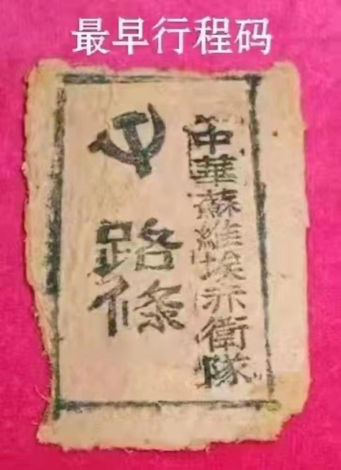 最早行程码
中華蘇維埃赤衛隊
路條